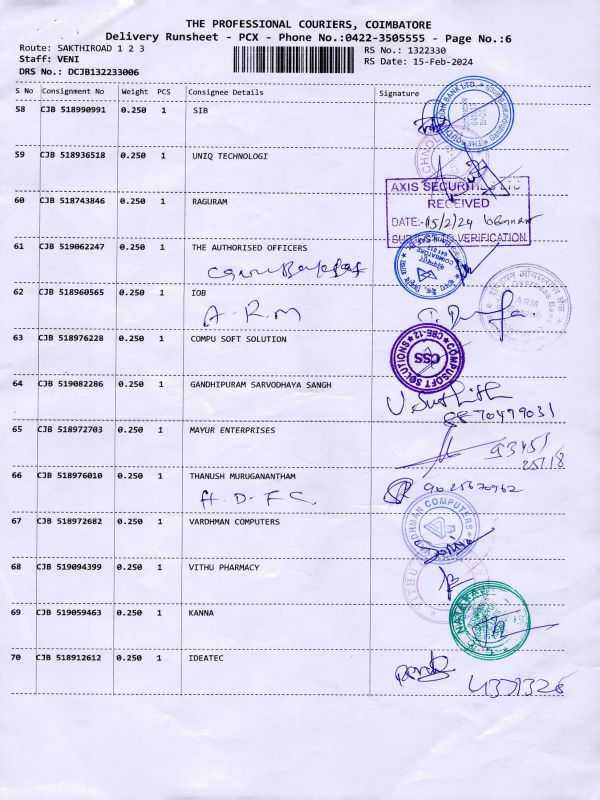 THE PROFESSIONAL COURIERS, COIMBATORE
Delivery Runsheet - PCX - Phone No.:0422-3505555 - Page No.:6
Route: SAKTHIROAD 1 2 3 RS No.: 1322330
Staff: VENI RS Date: 15-Feb-2024
DRS No.: DCJB132233006
S No Consignment No Weight PCS Consignee Details Signature
58 CJB 518990991 0.250 1 SIB
59 CJB 518936518 0.250 1 UNIQ TECHNOLOGI
AXIS SECURITIES LTD
RECEIVED
60 CJB 518743846 0.250 1 RAGURAM
DATE:- 15/2/24
VERIFICATION
61 CJB 519062247 0.250 1 THE AUTHORISED OFFICERS
62 CJB 518960565 0.250 1 IOB
A.R.M
63 CJB 518976228 0.250 1 COMPU SOFT SOLUTION
COMPUSOFT SOLUTIONS CBE-12
CSS
64 CJB 519082286 0.250 1 GANDHIPURAM SARVODHAYA SANGH
8870479031
65 CJB 518972703 0.250 1 MAYUR ENTERPRISES
66 CJB 518976010 0.250 1 THANUSH MURUGANANTHAM
H.D.F.C
9025670962
67 CJB 518972682 0.250 1 VARDHMAN COMPUTERS
VARDHMAN COMPUTERS
68 CJB 519094399 0.250 1 VITHU PHARMACY
69 CJB 519059463 0.250 1 KANNA
70 CJB 518912612 0.250 1 IDEATEC